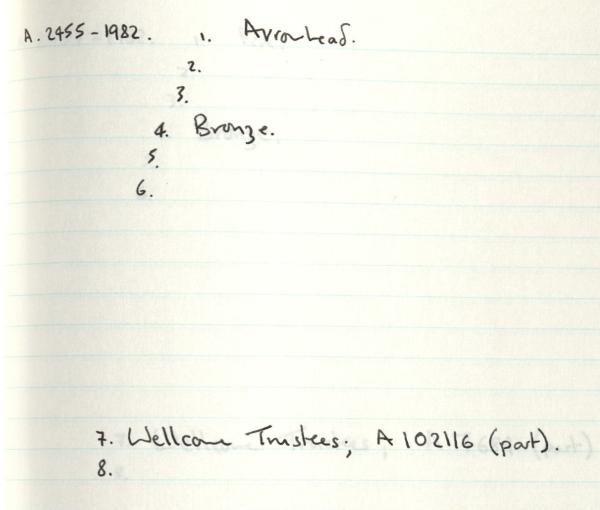 A. 2455-1982. 1. Arrowhead.
2.
3.
4. Bronze.
5.
6.
7. Wellcome Trustees; A 102116 (part).
8.